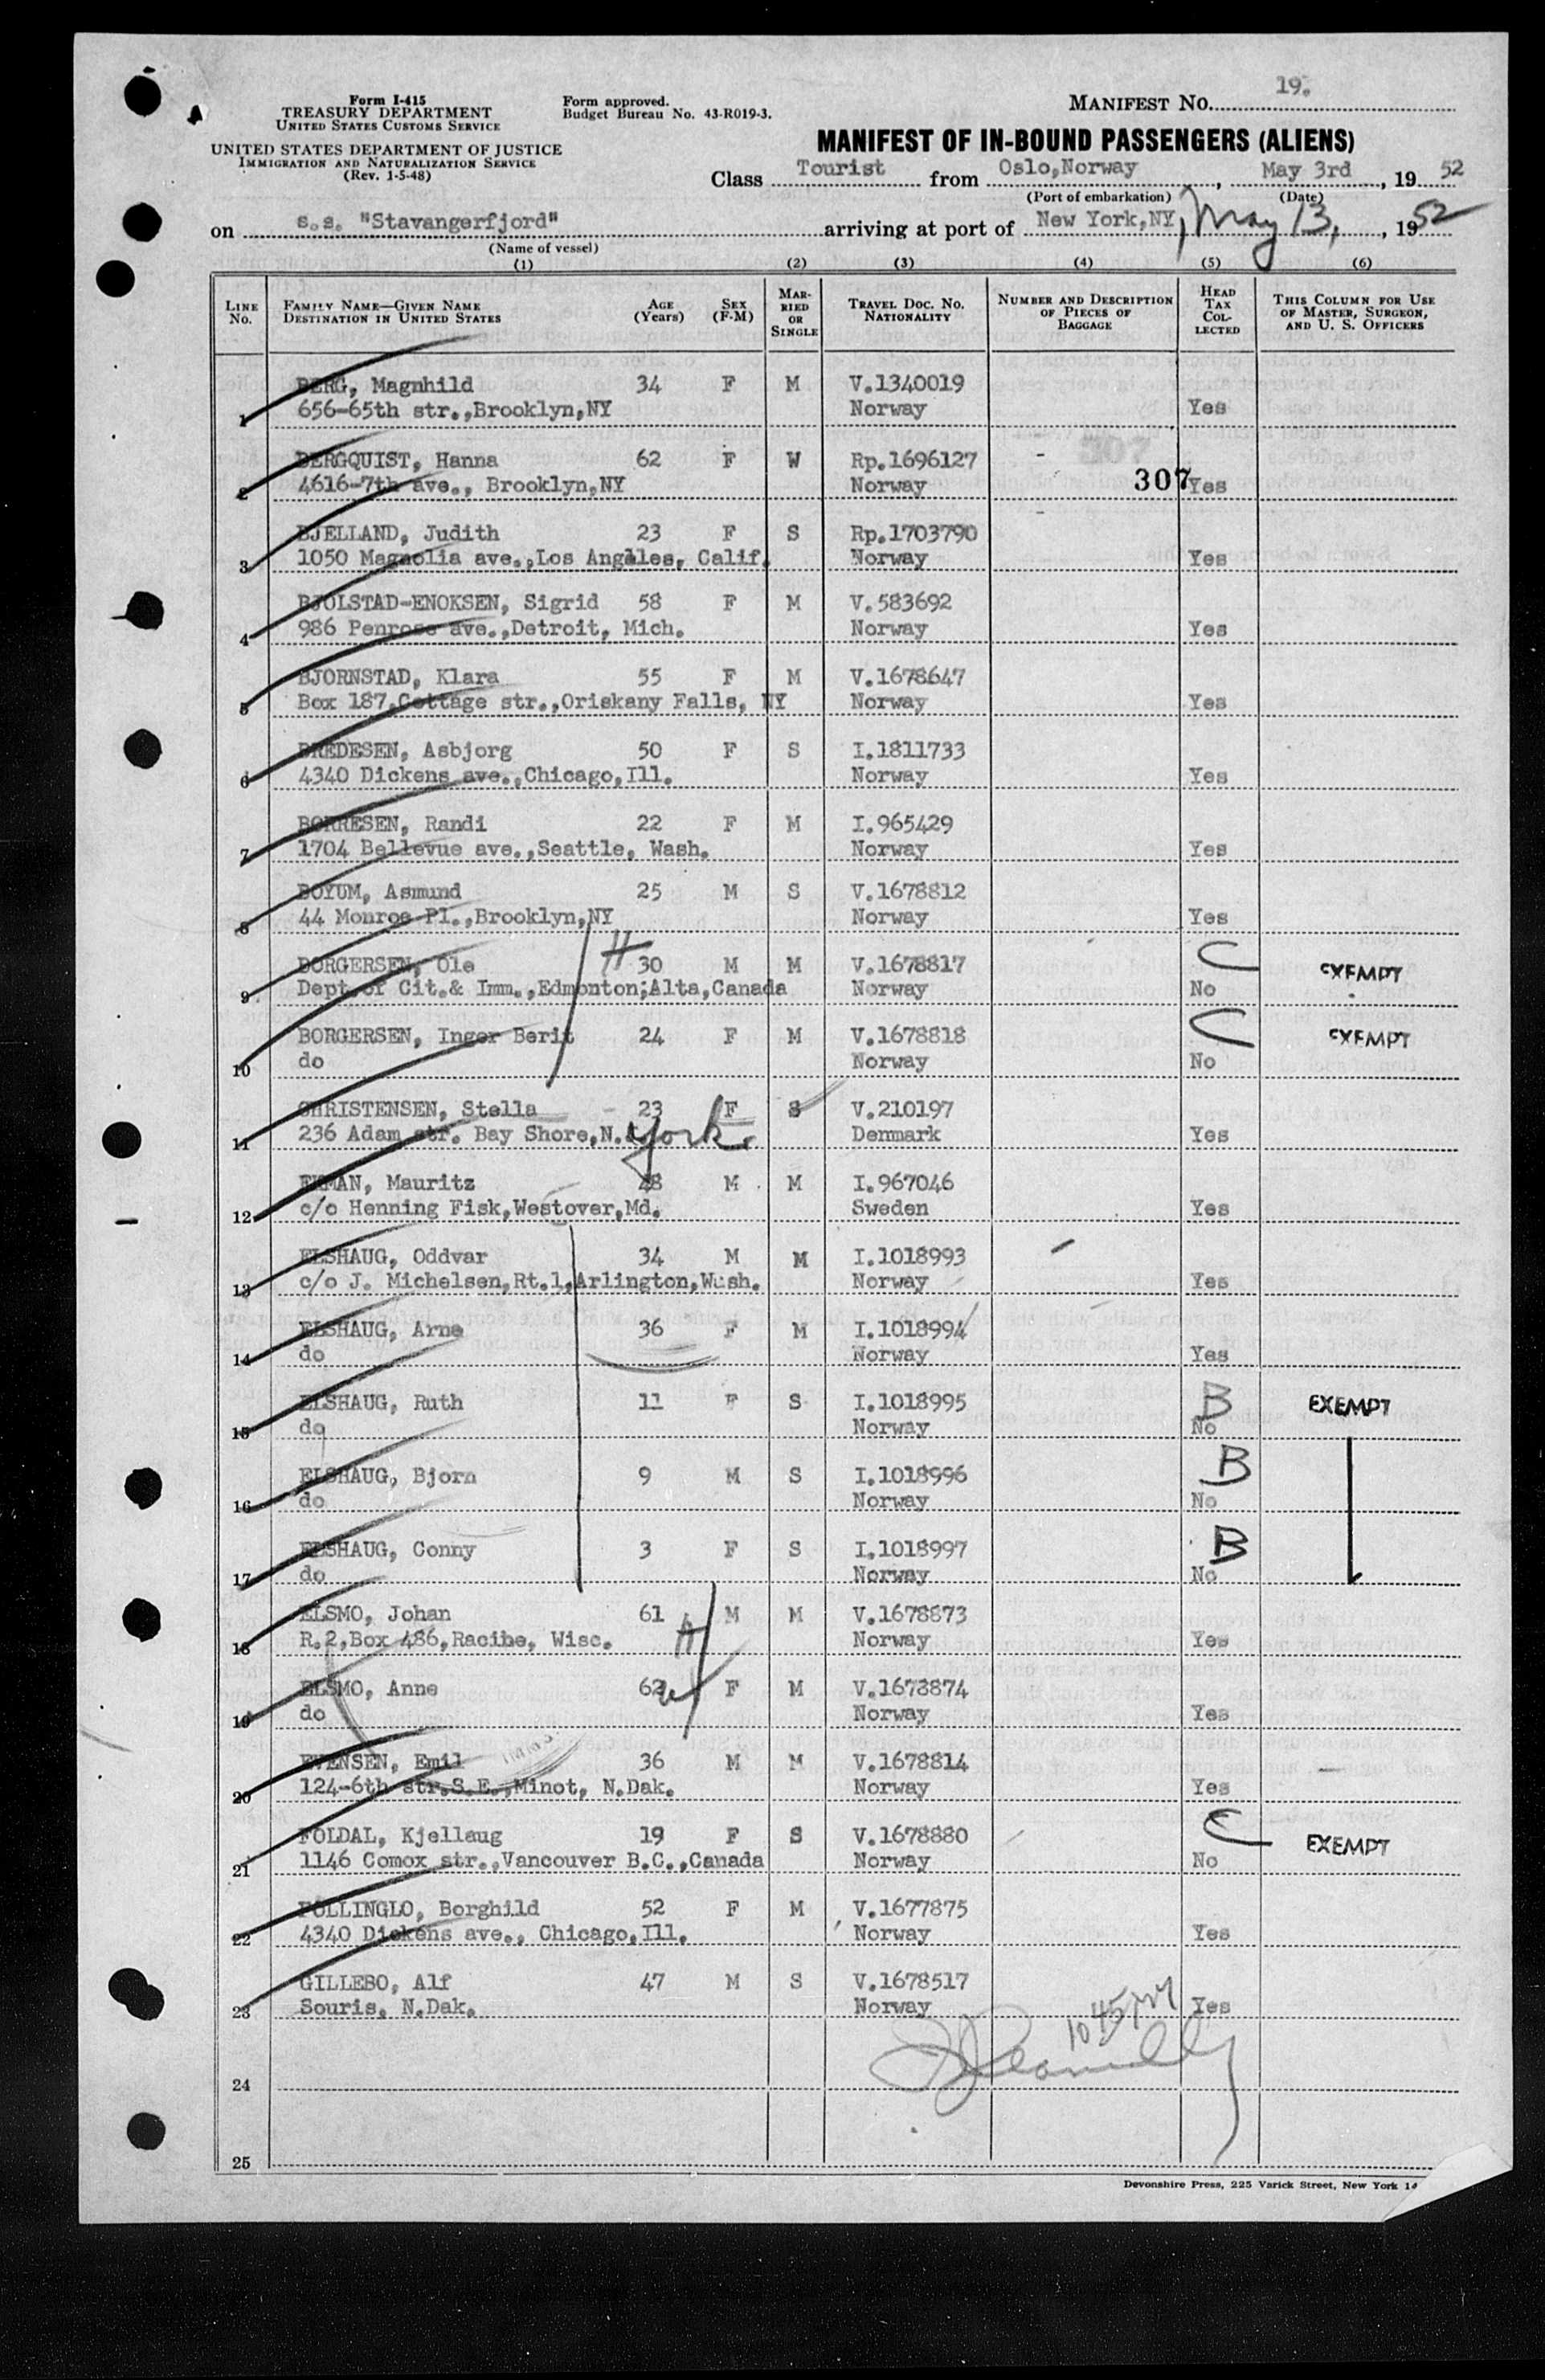 19.
Form I-415
TREASURY DEPARTMENT
UNITED STATES CUSTOMS SERVICE
UNITED STATES DEPARTMENT OF JUSTICE
IMMIGRATION AND NATURALIZATION SERVICE
(Rev. 1-5-48)
Form approved.
Budget Bureau No. 43-R019-3.
MANIFEST NO.
MANIFEST OF IN-BOUND PASSENGERS (ALIENS)
Class Tourist from Oslo,Norway, May 3rd, 1952
(Port of embarkation) (Date)
on s.s. "Stavangerfjord" arriving at port of New York,NY, May 13, 1952
(Name of vessel)
(1) (2) (3) (4) (5) (6)
LINE No. FAMILY NAME—GIVEN NAME DESTINATION IN UNITED STATES AGE (Years) SEX (F-M) MARRIED OR SINGLE TRAVEL DOC. NO. NATIONALITY NUMBER AND DESCRIPTION OF PIECES OF BAGGAGE HEAD TAX COLLECTED THIS COLUMN FOR USE OF MASTER, SURGEON, AND U. S. OFFICERS
BERG, Magnhild 34 F M V.1340019
1 656-65th str.,Brooklyn,NY Norway Yes
BERGQUIST, Hanna 62 F W Rp.1696127
2 4616-7th ave., Brooklyn,NY Norway 307 Yes
BJELLAND, Judith 23 F S Rp.1703790
3 1050 Magnolia ave.,Los Angeles, Calif. Norway Yes
BJOLSTAD-ENOKSEN, Sigrid 58 F M V.583692
4 986 Penrose ave.,Detroit, Mich. Norway Yes
BJORNSTAD, Klara 55 F M V.1678647
5 Box 187,Cottage str.,Oriskany Falls, NY Norway Yes
BREDESEN, Asbjorg 50 F S I.1811733
6 4340 Dickens ave.,Chicago,Ill. Norway Yes
BORRESEN, Randi 22 F M I.965429
7 1704 Bellevue ave.,Seattle, Wash. Norway Yes
BOYUM, Asmund 25 M S V.1678812
8 44 Monroe Pl.,Brooklyn,NY Norway Yes
BORGERSEN, Ole H 30 M M V.1678817 C EXEMPT
9 Dept.of Cit.& Imm.,Edmonton;Alta,Canada Norway No
BORGERSEN, Inger Berit 24 F M V.1678818 C EXEMPT
10 do Norway No
CHRISTENSEN, Stella 23 F S V.210197
11 236 Adam str. Bay Shore,N. York. Denmark Yes
EKMAN, Mauritz 48 M M I.967046
12 c/o Henning Fisk,Westover,Md. Sweden Yes
ELSHAUG, Oddvar 34 M M I.1018993
13 c/o J. Michelsen,Rt.1,Arlington,Wash. Norway Yes
ELSHAUG, Arne 36 F M I.1018994
14 do Norway Yes
ELSHAUG, Ruth 11 F S I.1018995 B EXEMPT
15 do Norway No
ELSHAUG, Bjorn 9 M S I.1018996 B
16 do Norway No
ELSHAUG, Conny 3 F S I.1018997 B
17 do Norway No
ELSMO, Johan 61 H M M V.1678873
18 R.2,Box 486,Racine, Wisc. Norway Yes
ELSMO, Anne 62 w F M V.1678874
19 do Norway Yes
EVENSEN, Emil 36 M M V.1678814
20 124-6th str.S.E.,Minot, N.Dak. Norway Yes
FOLDAL, Kjellaug 19 F S V.1678880 C EXEMPT
21 1146 Comox str.,Vancouver B.C.,Canada Norway No
FOLLINGLO, Borghild 52 F M V.1677875
22 4340 Dickens ave., Chicago,Ill. Norway Yes
GILLEBO, Alf 47 M S V.1678517
23 Souris, N.Dak. Norway Yes
1045PM
24
25
Devonshire Press, 225 Varick Street, New York 14